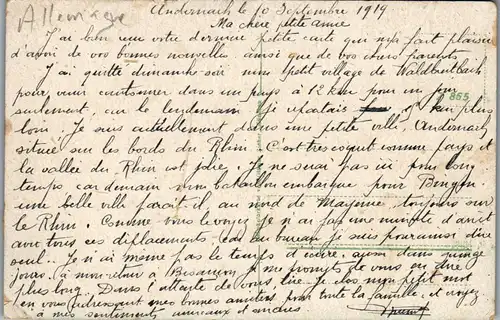 Allemagne
Andernach le 10 Septembre 1919
Ma chère petite amie
J'ai bien reçu votre dernière petite carte qui m'a fait plaisir
d'avoir de vos bonnes nouvelles ainsi que de vos chers parents
J'ai quitté dimanche soir mon petit village de
pour venir cantonner dans un pays à 12 km pour un jour
seulement, car le lendemain je repartais plus
loin. Je suis actuellement dans une petite ville, Andernach
située sur les bords du Rhin. C'est très coquet comme pays et
la vallée du Rhin est jolie. Je ne serai pas ici plus long
temps car demain mon bataillon embarque pour Bingen
une belle ville paraît il, au nord de Mayence toujours sur
le Rhin. Comme vous le voyez je n'ai pas une minute d'arrêt
avec tous ces déplacements, et au bureau je suis pour ainsi dire
seul. Je n'ai même pas le temps d'écrire, aussi dans quinze
jours à mon retour à Besançon je me promets de vous en dire
plus long. Dans l'attente de vous lire je clos mon petit mot
en vous adressant mes bonnes amitiés pour toute la famille et voyez
à mes sentiments amicaux et sincères.
865